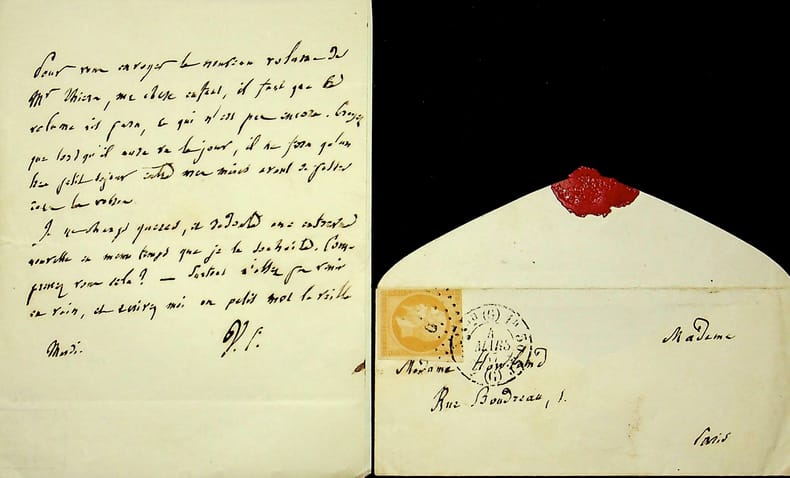 Pour vous envoyer le nouveau volume de
Mr Thiers, ma chère enfant, il faut que le
volume ait paru, ce qui n'est pas encore. Croyez
que lorsqu'il aura vu le jour, il ne fera qu'un
bien petit séjour entre mes mains avant de passer
dans les vôtres.
Je ne change guères, et redoute une entrevue
nouvelle en même temps que je la souhaite. Com-
prenez vous cela? — Surtout n'allez pas venir
en vain, et écrivez moi un petit mot la veille
Mardi.
Madame
Madame Howland
Rue Boudreau, 1.
Paris
(G)
4
MARS
(G)
G